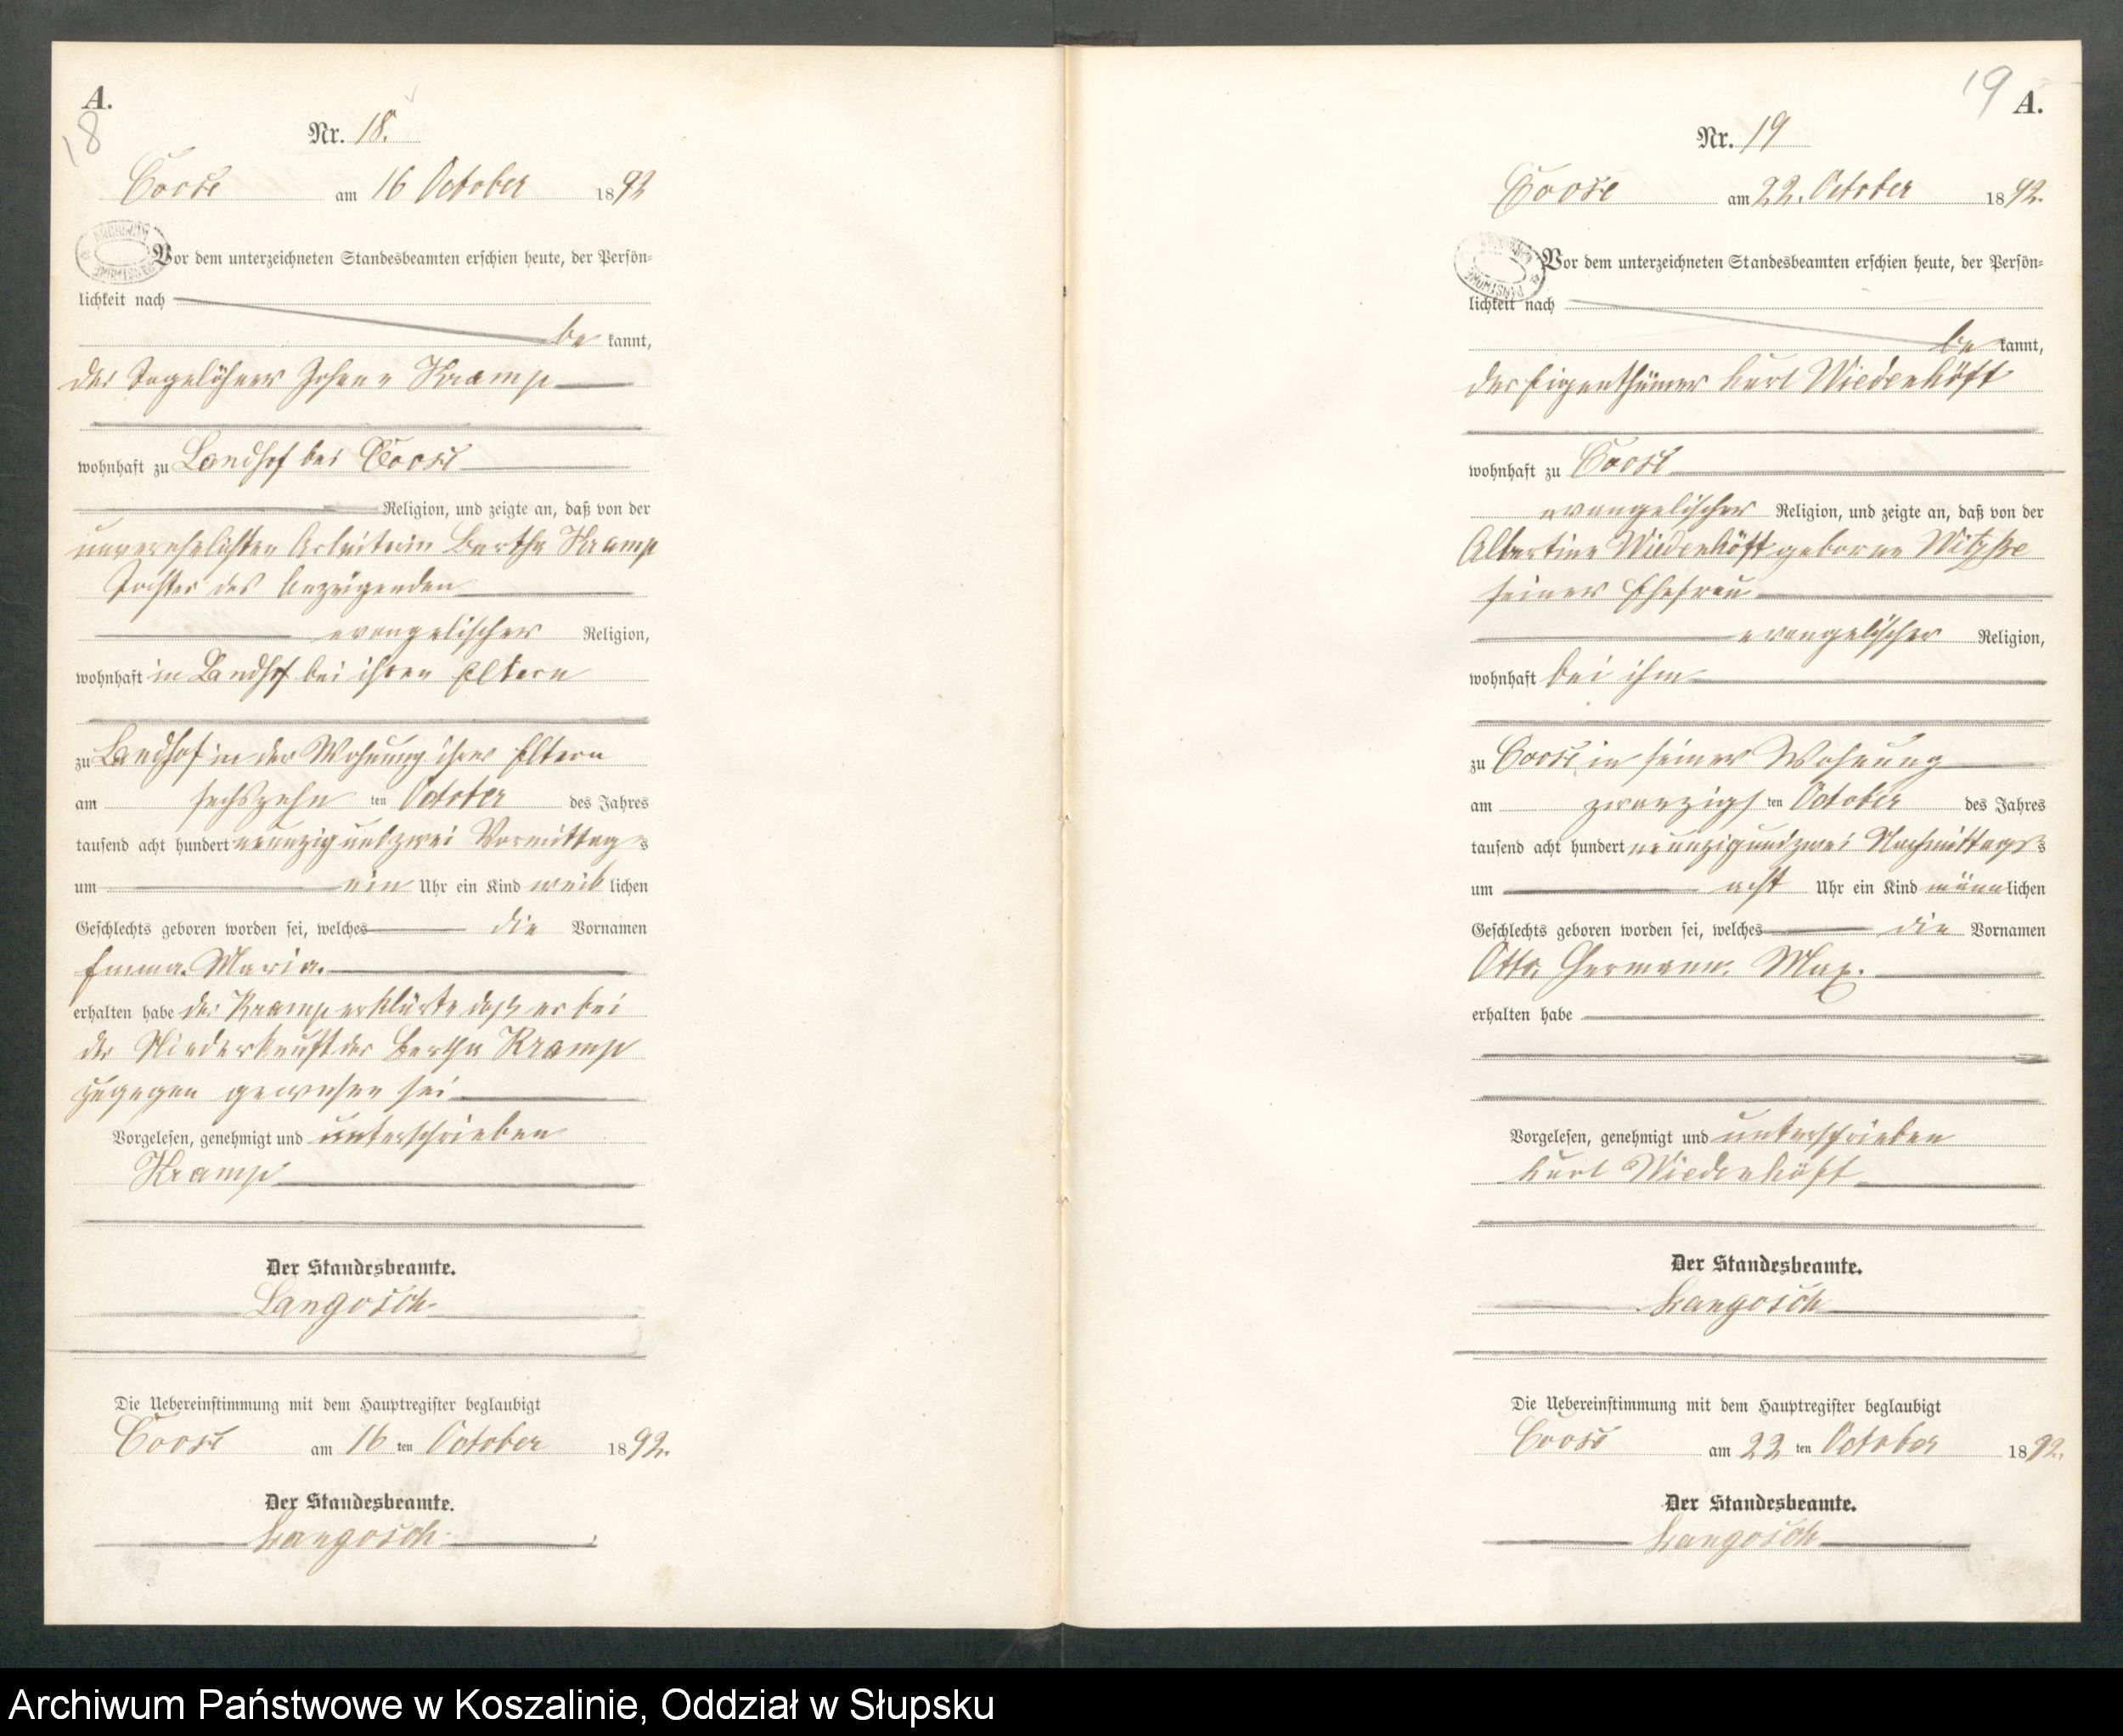 A.
18
Nr. 18.
Coose am 16 October 1892
Vor dem unterzeichneten Standesbeamten erschien heute, der Persön-
lichkeit nach
be kannt,
der Tagelöhner Johann Kramp
wohnhaft zu Landhof bei Coose
Religion, und zeigte an, daß von der
unverehelichten Arbeiterin Bertha Kramp
Tochter des Anzeigenden
evangelischer Religion,
wohnhaft in Landhof bei ihren Eltern
zu Landhof in der Wohnung ihrer Eltern
am sechszehn ten October des Jahres
tausend acht hundert neunzig und zwei Vormittags
um ein Uhr ein Kind weib lichen
Geschlechts geboren worden sei, welches die Vornamen
Emma. Maria.
erhalten habe der Kramp erklärte daß er bei
der Niederkunft der Bertha Kramp
zugegen gewesen sei
Vorgelesen, genehmigt und unterschrieben
Kramp
Der Standesbeamte.
Langosch
Die Uebereinstimmung mit dem Hauptregister beglaubigt
Coose am 16 ten October 1892.
Der Standesbeamte.
Langosch
19
A.
Nr. 19
Coose am 22. October 1892.
Vor dem unterzeichneten Standesbeamten erschien heute, der Persön-
lichkeit nach
be kannt,
der Eigenthümer Karl Wiedenhöft
wohnhaft zu Coose
evangelischer Religion, und zeigte an, daß von der
Albertine Wiedenhöft geborne Nitzke
seiner Ehefrau
evangelischer Religion,
wohnhaft bei ihm
zu Coose in seiner Wohnung
am zwanzigs ten October des Jahres
tausend acht hundert neunzig und zwei Nachmittags
um acht Uhr ein Kind männ lichen
Geschlechts geboren worden sei, welches die Vornamen
Otto. Hermann. Max.
erhalten habe
Vorgelesen, genehmigt und unterschrieben
Karl Wiedenhöft
Der Standesbeamte.
Langosch
Die Uebereinstimmung mit dem Hauptregister beglaubigt
Coose am 22 ten October 1892.
Der Standesbeamte.
Langosch
Archiwum Państwowe w Koszalinie, Oddział w Słupsku